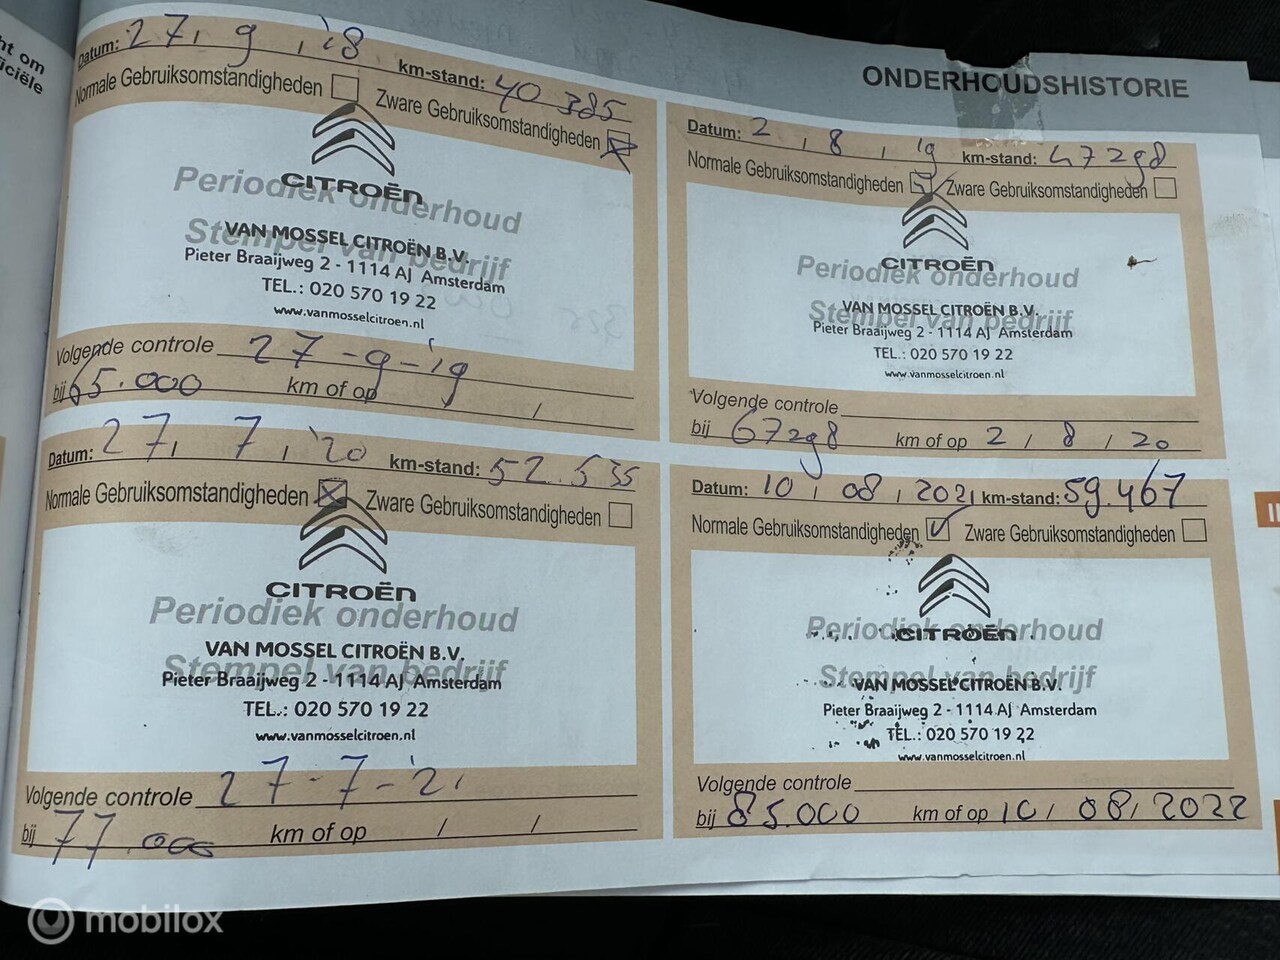 ht om
iciële
ONDERHOUDSHISTORIE
Datum: 27, 9, '18 km-stand: 40 385
Normale Gebruiksomstandigheden Zware Gebruiksomstandigheden
CITROËN
Periodiek onderhoud
Stempel van bedrijf
VAN MOSSEL CITROËN B.V.
Pieter Braaijweg 2 - 1114 AJ Amsterdam
TEL.: 020 570 19 22
www.vanmosselcitroen.nl
Volgende controle 27-9-'19
bij 65.000 km of op / /
Datum: 2, 8, 19 km-stand: 47298
Normale Gebruiksomstandigheden Zware Gebruiksomstandigheden
CITROËN
Periodiek onderhoud
Stempel van bedrijf
VAN MOSSEL CITROËN B.V.
Pieter Braaijweg 2 - 1114 AJ Amsterdam
TEL.: 020 570 19 22
www.vanmosselcitroen.nl
Volgende controle
bij 67298 km of op 2 / 8 / 20
Datum: 27, 7, '20 km-stand: 52.535
Normale Gebruiksomstandigheden Zware Gebruiksomstandigheden
CITROËN
Periodiek onderhoud
Stempel van bedrijf
VAN MOSSEL CITROËN B.V.
Pieter Braaijweg 2 - 1114 AJ Amsterdam
TEL.: 020 570 19 22
www.vanmosselcitroen.nl
Volgende controle 27-7-'21
bij 77.000 km of op / /
Datum: 10, 08, 2021 km-stand: 59.467
Normale Gebruiksomstandigheden Zware Gebruiksomstandigheden
CITROËN
Periodiek onderhoud
Stempel van bedrijf
VAN MOSSEL CITROËN B.V.
Pieter Braaijweg 2 - 1114 AJ Amsterdam
TEL.: 020 570 19 22
www.vanmosselcitroen.nl
Volgende controle
bij 85.000 km of op 10 / 08 / 2022
mobilox